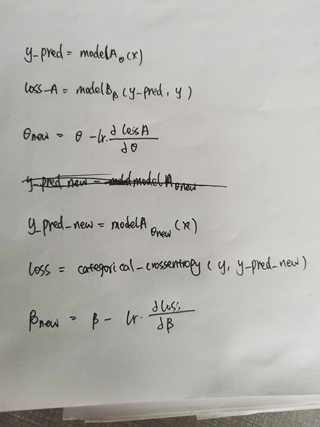 y_pred = modelA_θ(x)
loss_A = modelB_β(y_pred, y)
θ_new = θ - lr. ∂lossA/∂θ
y_pred_new = modelA_θnew
y_pred_new = modelA_θnew(x)
loss = categorical_crossentropy(y, y_pred_new)
β_new = β - lr. ∂loss/∂β